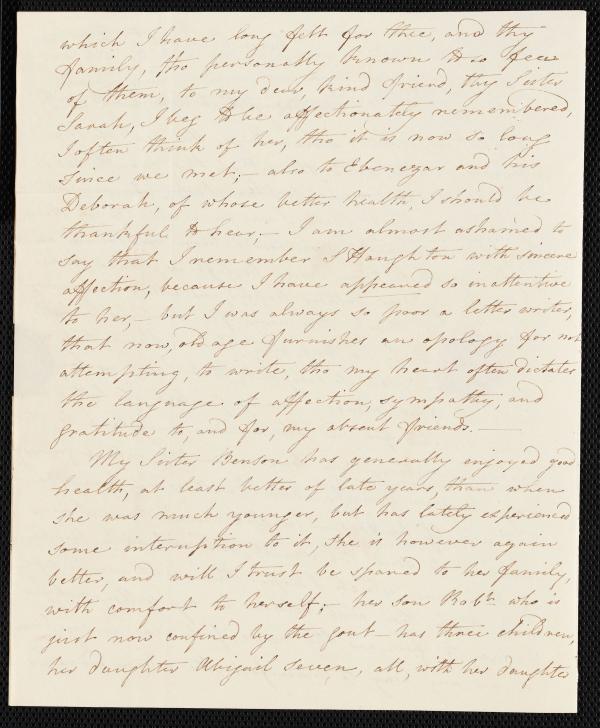 which I have long felt for thee, and thy
family, tho personally known to so few
of them, to my dear, kind friend, thy Sister
Sarah, I beg to be affectionately remembered,
I often think of her, tho it is now so long
since we met;– also to Ebenezar and his
Deborah, of whose better health, I should be
thankful to hear;– I am almost ashamed to
say that I remember S Haughton with sincere
affection, because I have appeared so inattentive
to her,– but I was always so poor a letter writer,
that now, old age furnishes an apology for not
attempting, to write, tho my heart often dictates
the language of affection, sympathy, and
gratitude to, and for, my absent friends.–
My Sister Benson has generally enjoyed good
health, at least better of late years, than when
she was much younger, but has lately experienced
some interuption to it, she is however again
better, and will I trust be spared to her family,
with comfort to herself;– her son Robt. who is
just now confined by the gout– has three children,
her daughter Abigail seven, all, with her daughter